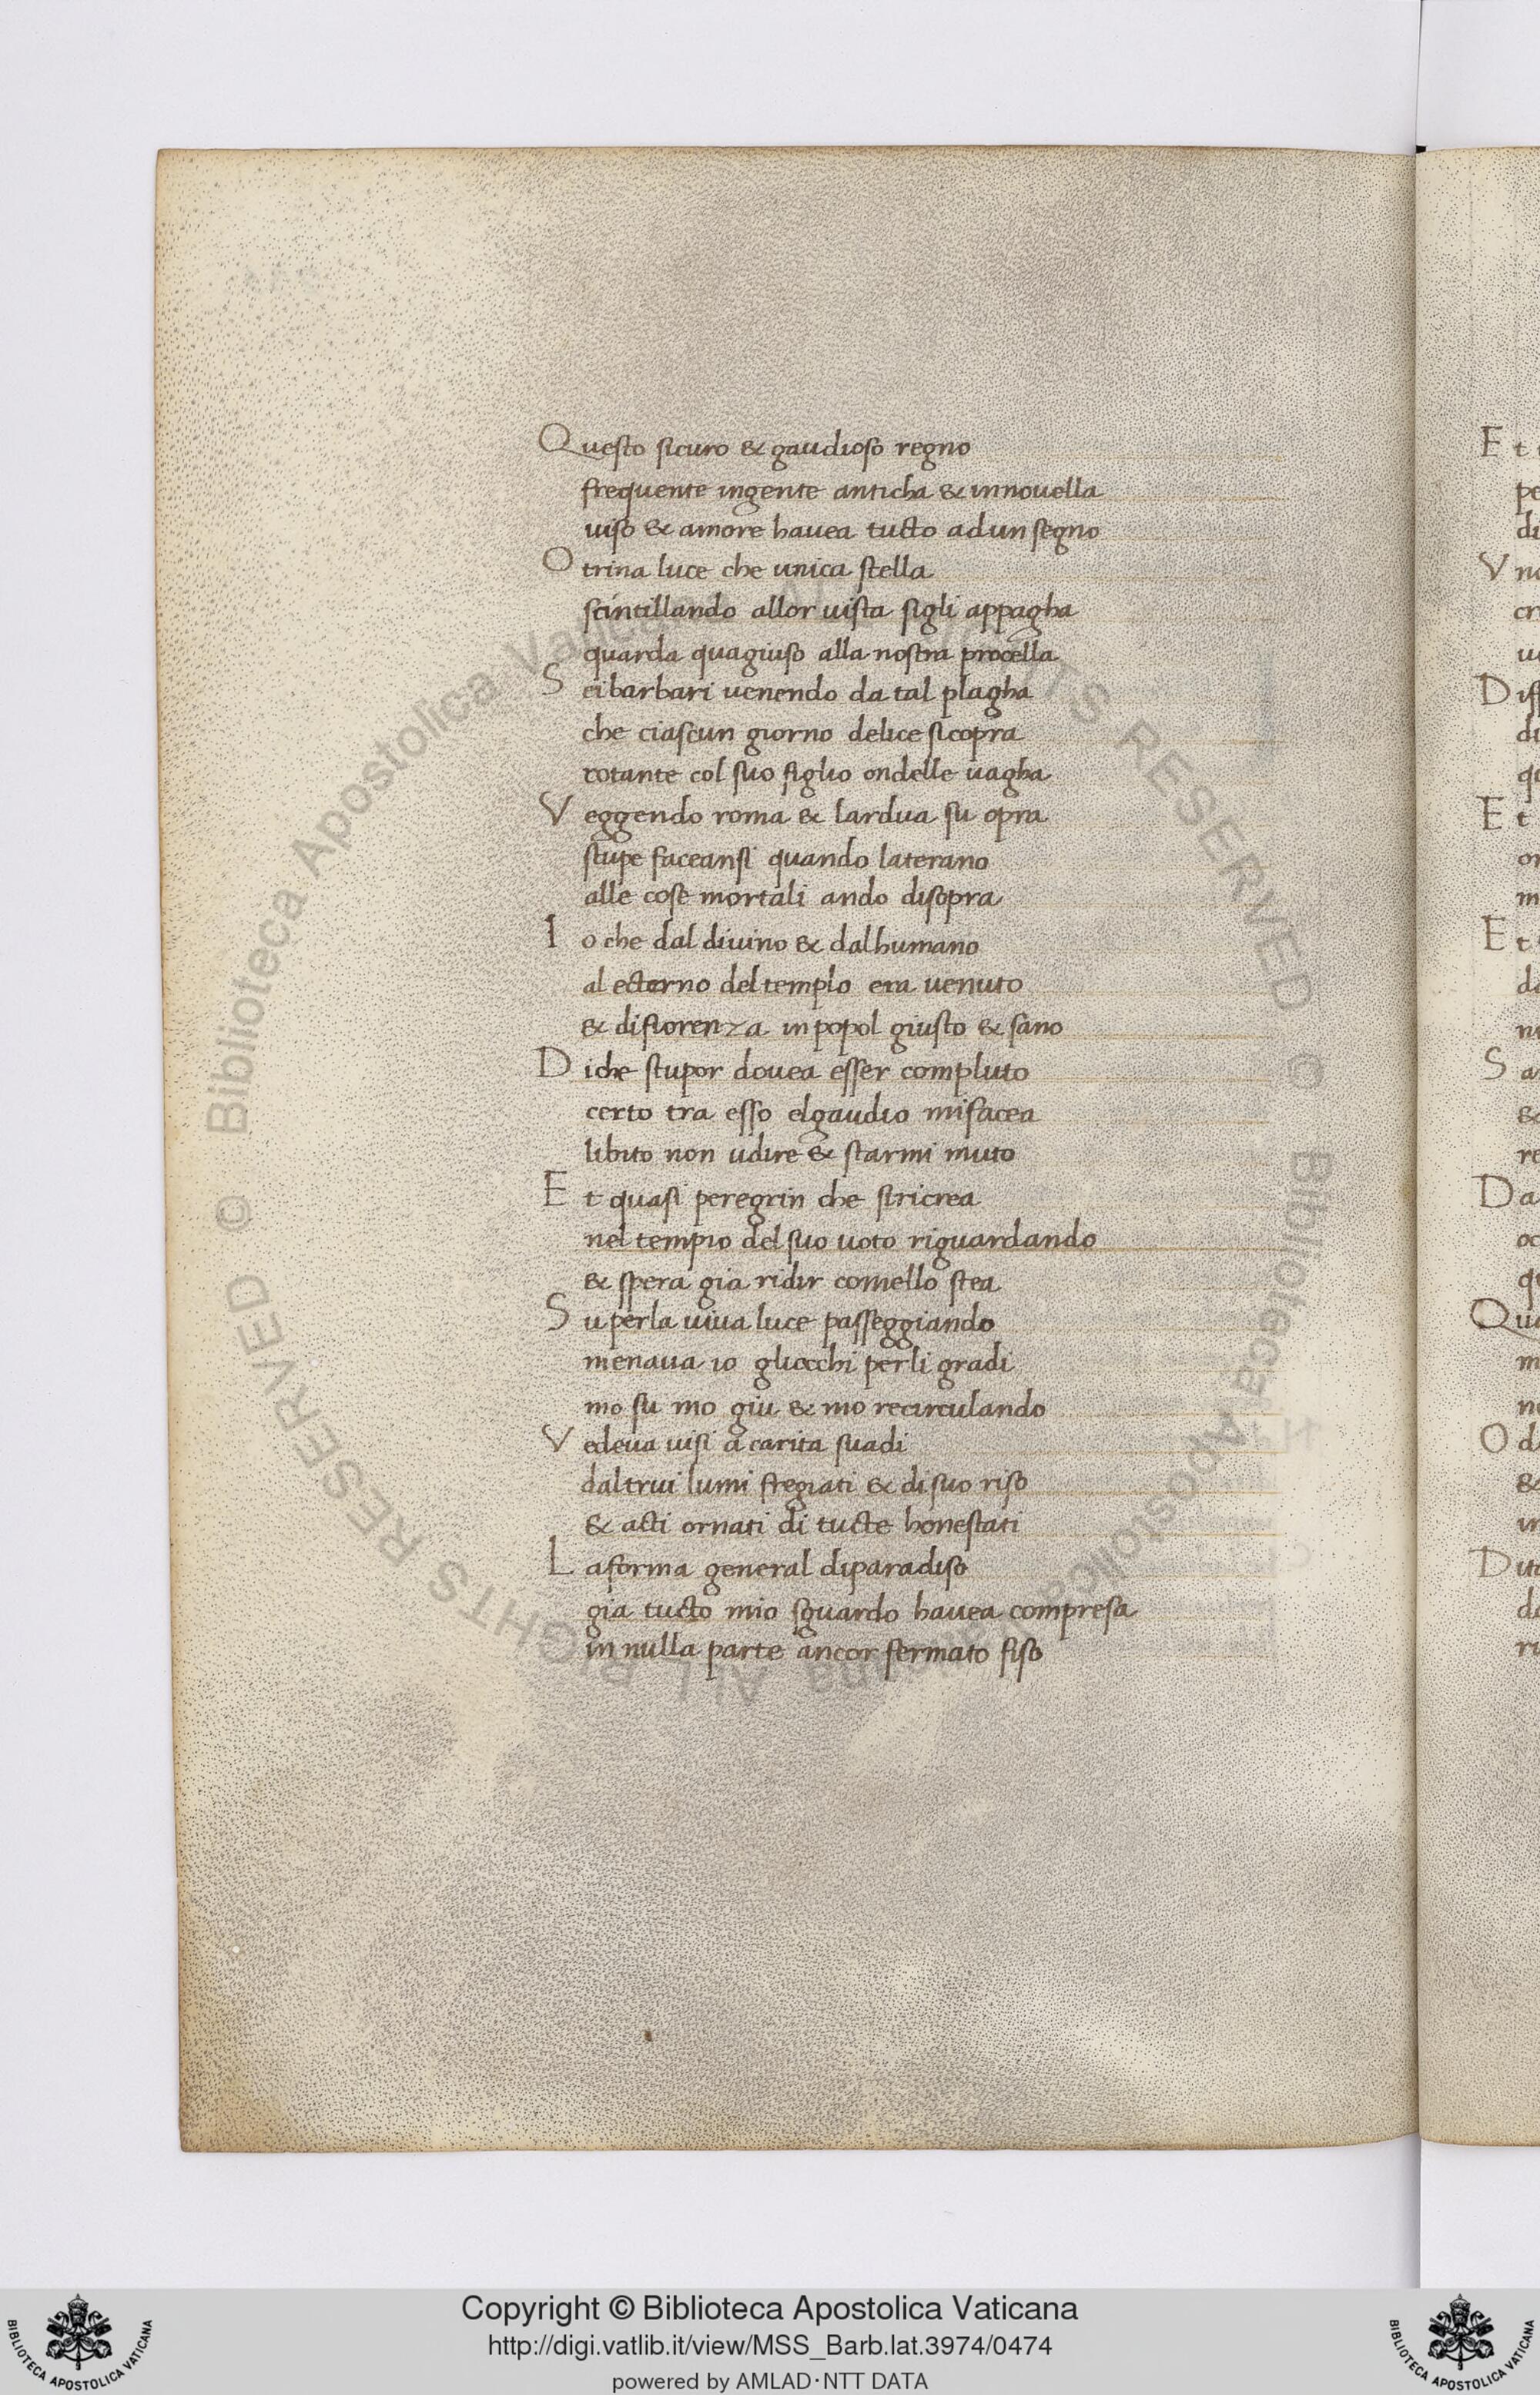 Questo sicuro & gaudioso regno
frequente ingente anticha & innouella
uiso & amore hauea tucto adun segno
O trina luce che unica stella
scintillando allor uista sigli appagha
quarda quagiuso alla nostra procella
Sei barbari uenendo da tal plagha
che ciascun giorno delice sicopra
rotante col suo figlio ondelle uagha
Veggendo roma & lardua su opra
stupefaceansi quando laterano
alle cose mortali ando disopra
Io che dal diuino & dalhumano
al ecterno del templo era uenuto
& difiorenza in popol giusto & sano
Diche stupor douea esser compluto
certo tra esso elgaudio mifacea
libito non udire & starmi muto
Et quasi peregrin che siricrea
nel tempio del suo uoto riguardando
& spera gia ridir comello stea
Su perla uiua luce passeggiando
menaua io gliocchi perli gradi
mo su mo giu & mo recirculando
Vedeua uisi a carita suadi
daltrui lumi fregiati & di suo riso
& acti ornati di tucte honestati
Laforma general diparadiso
gia tucto mio sguardo hauea compresa
in nulla parte ancor fermato fiso
Copyright © Biblioteca Apostolica Vaticana
http://digi.vatlib.it/view/MSS_Barb.lat.3974/0474
powered by AMLAD·NTT DATA